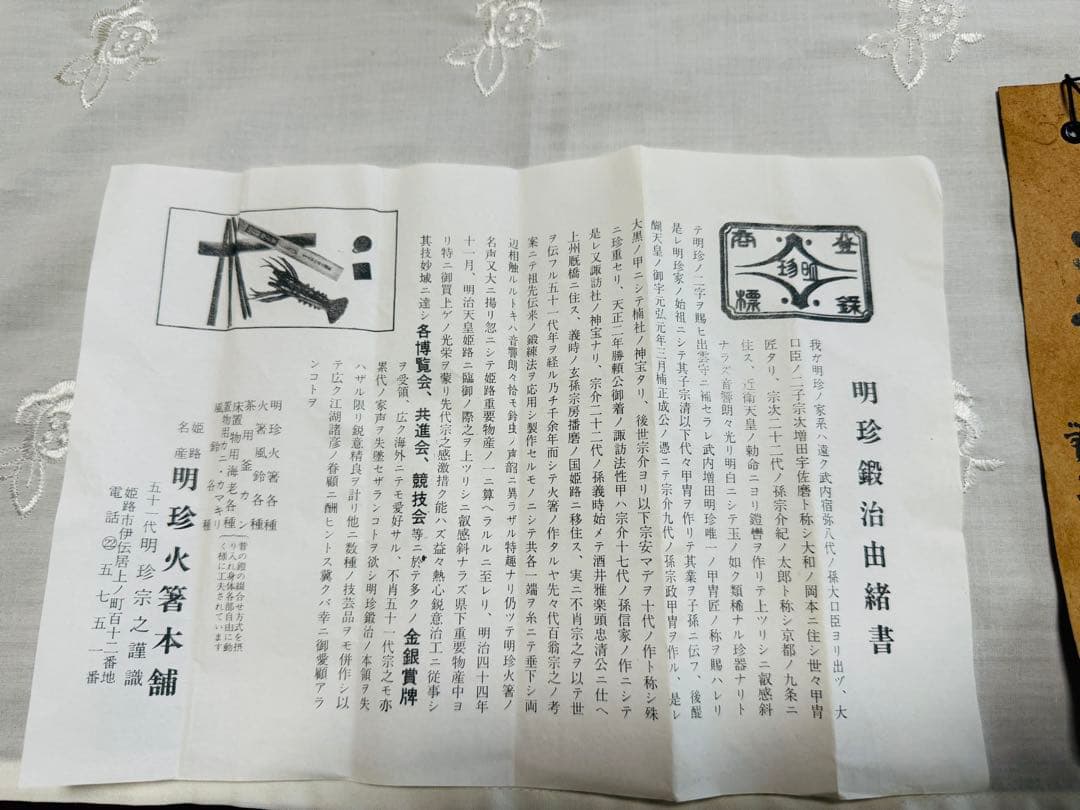 明珍鍛冶由緒書
登録
明珍
商標
我ガ明珍ノ家系ハ遠ク武内宿弥八代ノ孫大口臣ヨリ出ヅ、大
口臣ノ二子宗次増田宇佐麿ト称シ大和ノ岡本ニ住シ世々甲冑
匠タリ、宗次二十二代ノ孫宗介紀ノ太郎ト称シ京都ノ九条ニ
住ス、近衛天皇ノ勅命ニヨリ鎧轡ヲ作リテ上ツリシニ叡感斜
ナラズ音響朗々光リ明白ニシテ玉ノ如ク類稀ナル珍器ナリト
テ明珍ノ二字ヲ賜ヒ出雲守ニ補セラレ武内増田明珍唯一ノ甲冑匠ノ称ヲ賜ハレリ
是レ明珍家ノ始祖ニシテ其子宗清以下代々甲冑ヲ作リテ其業ヲ子孫ニ伝フ、後醍
醐天皇ノ御宇元弘元年三月楠正成公ノ憑ニテ宗介九代ノ孫宗政甲冑ヲ作ル、是レ
大黒ノ甲ニシテ楠社ノ神宝タリ、後世宗介ヨリ以下宗安マデヲ十代ノ作ト称シ殊
ニ珍重セリ、天正二年勝頼公御着ノ諏訪法性甲ハ宗介十七代ノ孫信家ノ作ニシテ
是レ又諏訪社ノ神宝ナリ、宗介二十二代ノ孫義時始メテ酒井雅楽頭忠清公ニ仕ヘ
上州厩橋ニ住ス、義時ノ玄孫宗房播磨ノ国姫路ニ移住ス、実ニ不肖宗之ヲ以テ世
ヲ伝フル五十一代年ヲ経ル乃チ千余年而シテ火箸ノ作タルヤ先々代百翁宗之ノ考
案ニテ祖先伝来ノ鍛練法ヲ応用シ製作セルモノニシテ共各一端ヲ糸ニテ垂下シ両
辺相触ルルトキハ音響朗々恰モ鈴虫ノ声韶ニ異ラザル特趣ナリ仍ツテ明珍火箸ノ
名声又大ニ揚リ忽ニシテ姫路重要物産ノ一ニ算ヘラルルニ至レリ、明治四十四年
十一月、明治天皇姫路ニ臨御ノ際之ヲ上ツリシニ叡感斜ナラズ県下重要物産中ヨ
リ特ニ御買上ゲノ光栄ヲ蒙リ先代宗之感激措ク能ハズ益々熱心鋭意治工ニ従事シ
其技妙域ニ達シ各博覧会、共進会、競技会等ニ於テ多クノ金銀賞牌
ヲ受領、広ク海外ニテモ愛好サル、不肖五十一代宗之モ亦
累代ノ家声ヲ失墜セザランコトヲ欲シ明珍鍛治ノ本領ヲ失
ハザル限リ鋭意精良ヲ計リ他ニ数種ノ技芸品ヲモ併作シ以
テ広ク江湖諸彦ノ眷顧ニ酬ヒントス冀クバ幸ニ御愛顧アラ
ンコトヲ
明珍火箸各種
火箸風鈴各種
茶用釜カン
床置物用海老各種
置物用カニ・カマキリ
風鈴各種
昔の鎧の綴合せ方式を摂
り入れ身体各部自由に動
く様に工夫されています
姫路
名産
明珍火箸本舗
五十一代明珍宗之謹識
姫路市伊伝居上ノ町百十二番地
電話㉒五七五一番